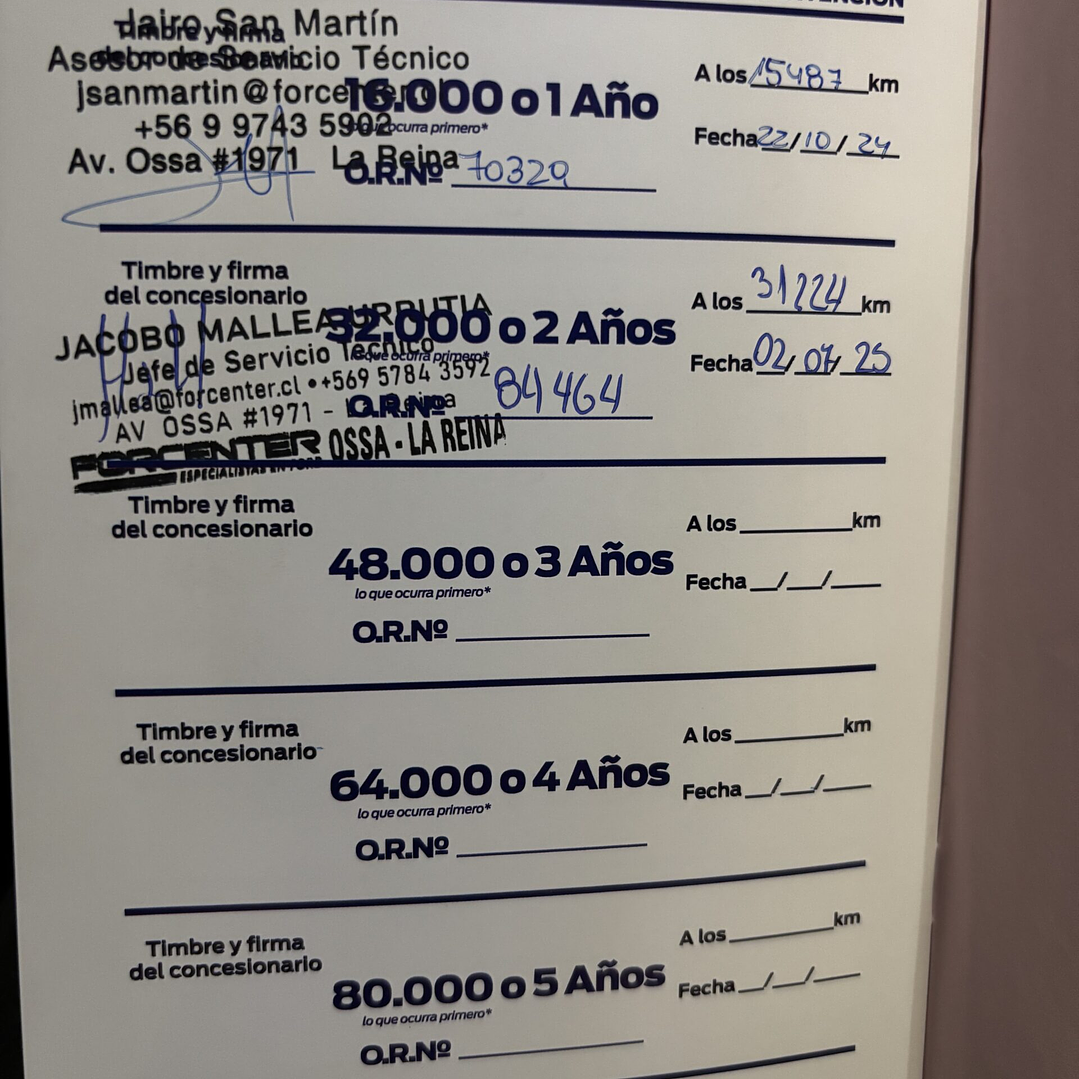 Jairo San Martín
Timbre y firma
Asesor de Servicio Técnico
del concesionario
jsanmartin@forcenter.cl
16.000 o 1 Año
lo que ocurra primero*
+56 9 9743 5902
Av. Ossa #1971 La Reina
O.R.Nº 70329
A los 15487 km
Fecha 22/10/24
Timbre y firma
del concesionario
JACOBO MALLEA URRUTIA
Jefe de Servicio Técnico
jmallea@forcenter.cl •+569 5784 3592
AV OSSA #1971 - La Reina
FORCENTER OSSA - LA REINA
ESPECIALISTAS EN FORD
32.000 o 2 Años
lo que ocurra primero*
O.R.Nº 84464
A los 31224 km
Fecha 02/07/25
Timbre y firma
del concesionario
48.000 o 3 Años
lo que ocurra primero*
O.R.Nº
A los km
Fecha / /
Timbre y firma
del concesionario
64.000 o 4 Años
lo que ocurra primero*
O.R.Nº
A los km
Fecha / /
Timbre y firma
del concesionario
80.000 o 5 Años
lo que ocurra primero*
O.R.Nº
A los km
Fecha / /